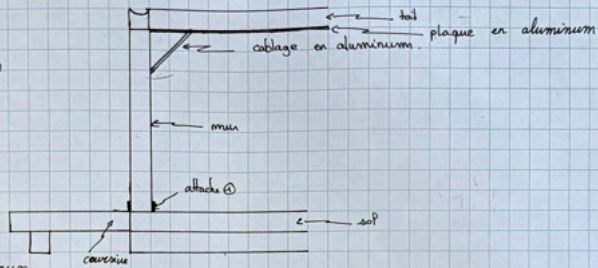 toit
plaque en aluminum
cablage en aluminum.
mur
attache ①
sol
coursive